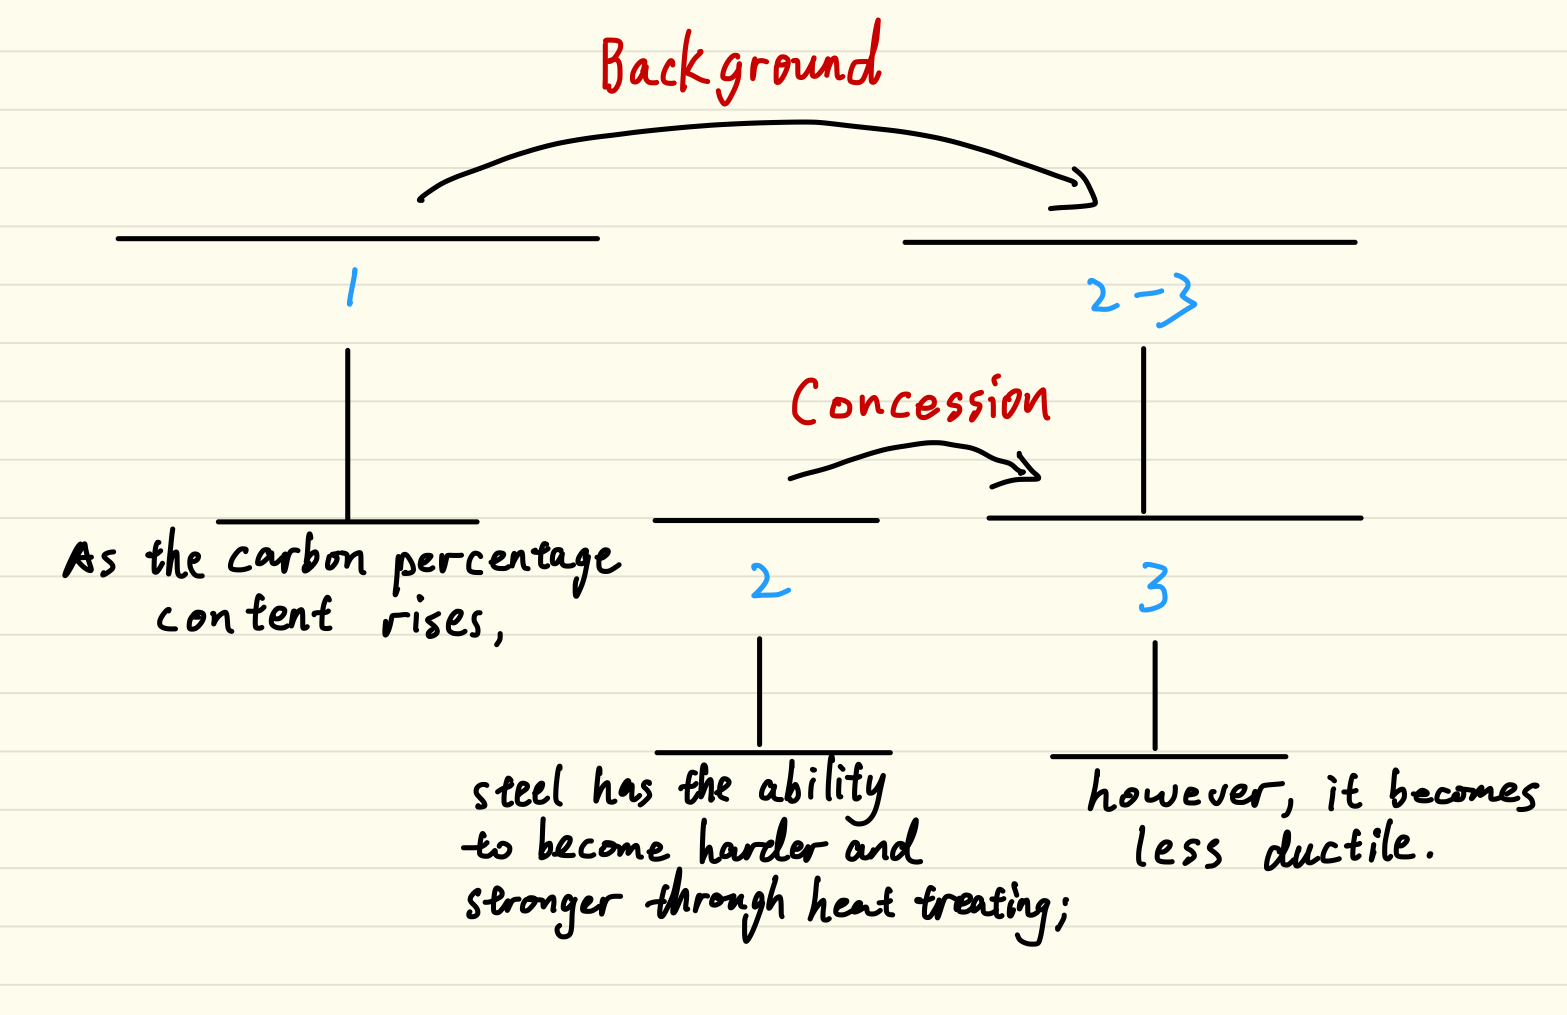 Background
1
2-3
Concession
As the carbon percentage
content rises,
2
3
steel has the ability
to become harder and
stronger through heat treating;
however, it becomes
less ductile.